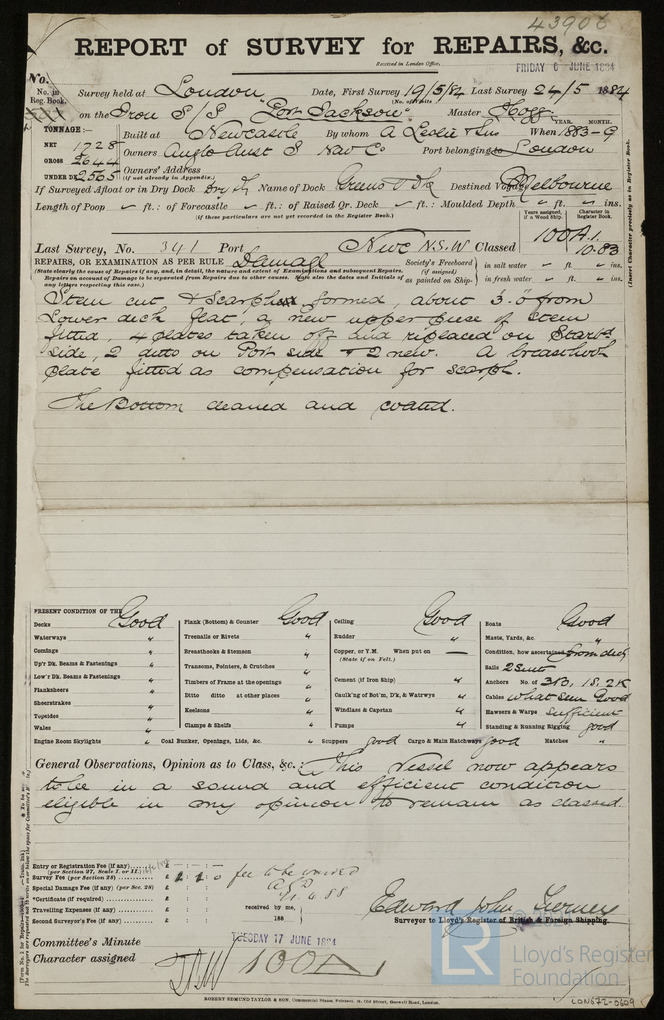 43906
REPORT of SURVEY for REPAIRS, &c.
Received in London Office,
FRIDAY 6 JUNE 1884
No.
No. in Reg. Book.
Survey held at London Date, First Survey 19/5/84 Last Survey 24/5 1884
(No. of Visits
on the Iron S/S "Port Jackson" Master Hogg
YEAR. MONTH.
TONNAGE:—
NET 1728
GROSS 2644
UNDER DK 2565
Built at Newcastle By whom A Leslie & Sns When 1883-9
Owners Anglo Aust S Nav Co Port belonging to London
Owners' Address
(if not already in Appendix.)
If Surveyed Afloat or in Dry Dock Dry Dk Name of Dock Greens Dk Destined Voyage Melbourne
Length of Poop ft. : of Forecastle ft. : of Raised Qr. Deck ft. : Moulded Depth ft. ins.
(if these particulars are not yet recorded in the Register Book.)
Years assigned, if a Wood Ship. Character in Register Book.
Last Survey, No. 341 Port Newc N.S.W Classed 100A1. 10.83
REPAIRS, OR EXAMINATION AS PER RULE Damage
(State clearly the cause of Repairs if any, and, in detail, the nature and extent of Examinations and subsequent Repairs.
Repairs on account of Damage to be separated from Repairs due to other causes. State also the dates and Initials of
any letters respecting this case.)
Society's Freeboard (if assigned) as painted on Ship- in salt water ft. ins.
in fresh water ft. ins.
(Insert Character precisely as in Register Book.
Stem cut & Scarph formed, about 3.0 from
Lower deck flat, a new upper piece of Stem
fitted, 4 plates taken off and replaced on Starbd
side, 2 ditto on Port side & 2 new. A breasthook
plate fitted as compensation for scarph.
The Bottom cleaned and coated.
PRESENT CONDITION OF THE
Decks Good
Waterways "
Comings "
Up'r Dk. Beams & Fastenings "
Low'r Dk. Beams & Fastenings "
Planksheers "
Sheerstrakes "
Topsides "
Wales "
Engine Room Skylights "
Plank (Bottom) & Counter Good
Treenails or Rivets "
Breasthooks & Stemson "
Transoms, Pointers, & Crutches "
Timbers of Frame at the openings "
Ditto ditto at other places "
Keelsons "
Clamps & Shelfs "
Coal Bunker, Openings, Lids, &c. "
Ceiling Good
Rudder "
Copper, or Y.M. When put on —
(State if on Felt.)
Cement (if Iron Ship) "
Caulk'ng of Bot'm, D'k, & Watrwys "
Windlass & Capstan "
Pumps "
Scuppers good Cargo & Main Hatchways good
Boats Good
Masts, Yards, &c. "
Condition, how ascertained from deck
Sails 2 Suit
Anchors No. 3B, 1S, 2K
Cables what seen Good
Hawsers & Warps Sufficient
Standing & Running Rigging good
Hatches "
General Observations, Opinion as to Class, &c. : This Vessel now appears
to be in a sound and efficient condition
eligible in my opinion to remain as classed.
Entry or Registration Fee (if any) £ : :
(per Section 27, Scale I. or II.)
Survey Fee (per Section 28) £ 1 : 1 : 0 fee to be
Special Damage Fee (if any) (per Sec. 28) £ : :
*Certificate (if required) £ : :
Travelling Expenses (if any) £ : :
Second Surveyor's Fee (if any) £ : :
received by me,
188
Edward John
Surveyor to Lloyd's Register of British & Foreign Shipping.
Committee's Minute TUESDAY 17 JUNE 1884
Character assigned 100A1
LR Lloyd's Register
Foundation
ROBERT EDMUND TAYLOR & SON, Commercial Steam Printers, 19, Old Street, Goswell Road, London.
LON672-0609